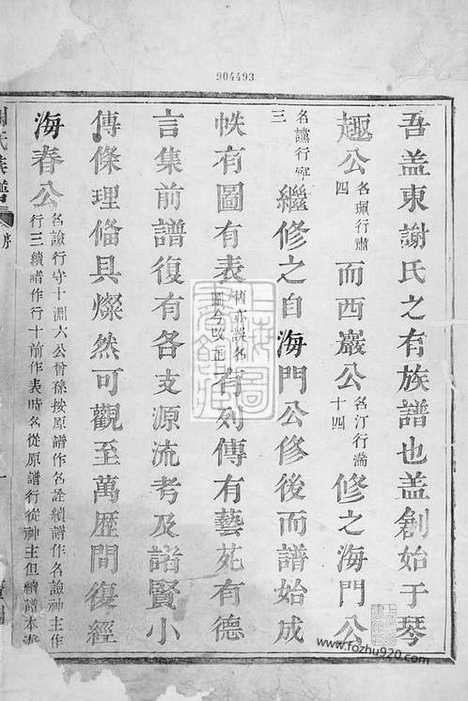 904493
吾盖東謝氏之有族譜也盖創始于琴
趣公名珮行肅四而西巖公名汀行滿十四修之海門公
名讜行守三繼修之自海門公修後而譜始成
帙有圖有表有列傳有藝苑有德
言集前譜復有各支源流考及諸賢小
傳條理俻具燦然可觀至萬歷間復經
海春公名諭行守十淵六公曾孫按原譜作名詮續譜作名諭神主作行三續譜作行十前作表時名從原譜行從神主但續譜本海
www.fozhu920.com